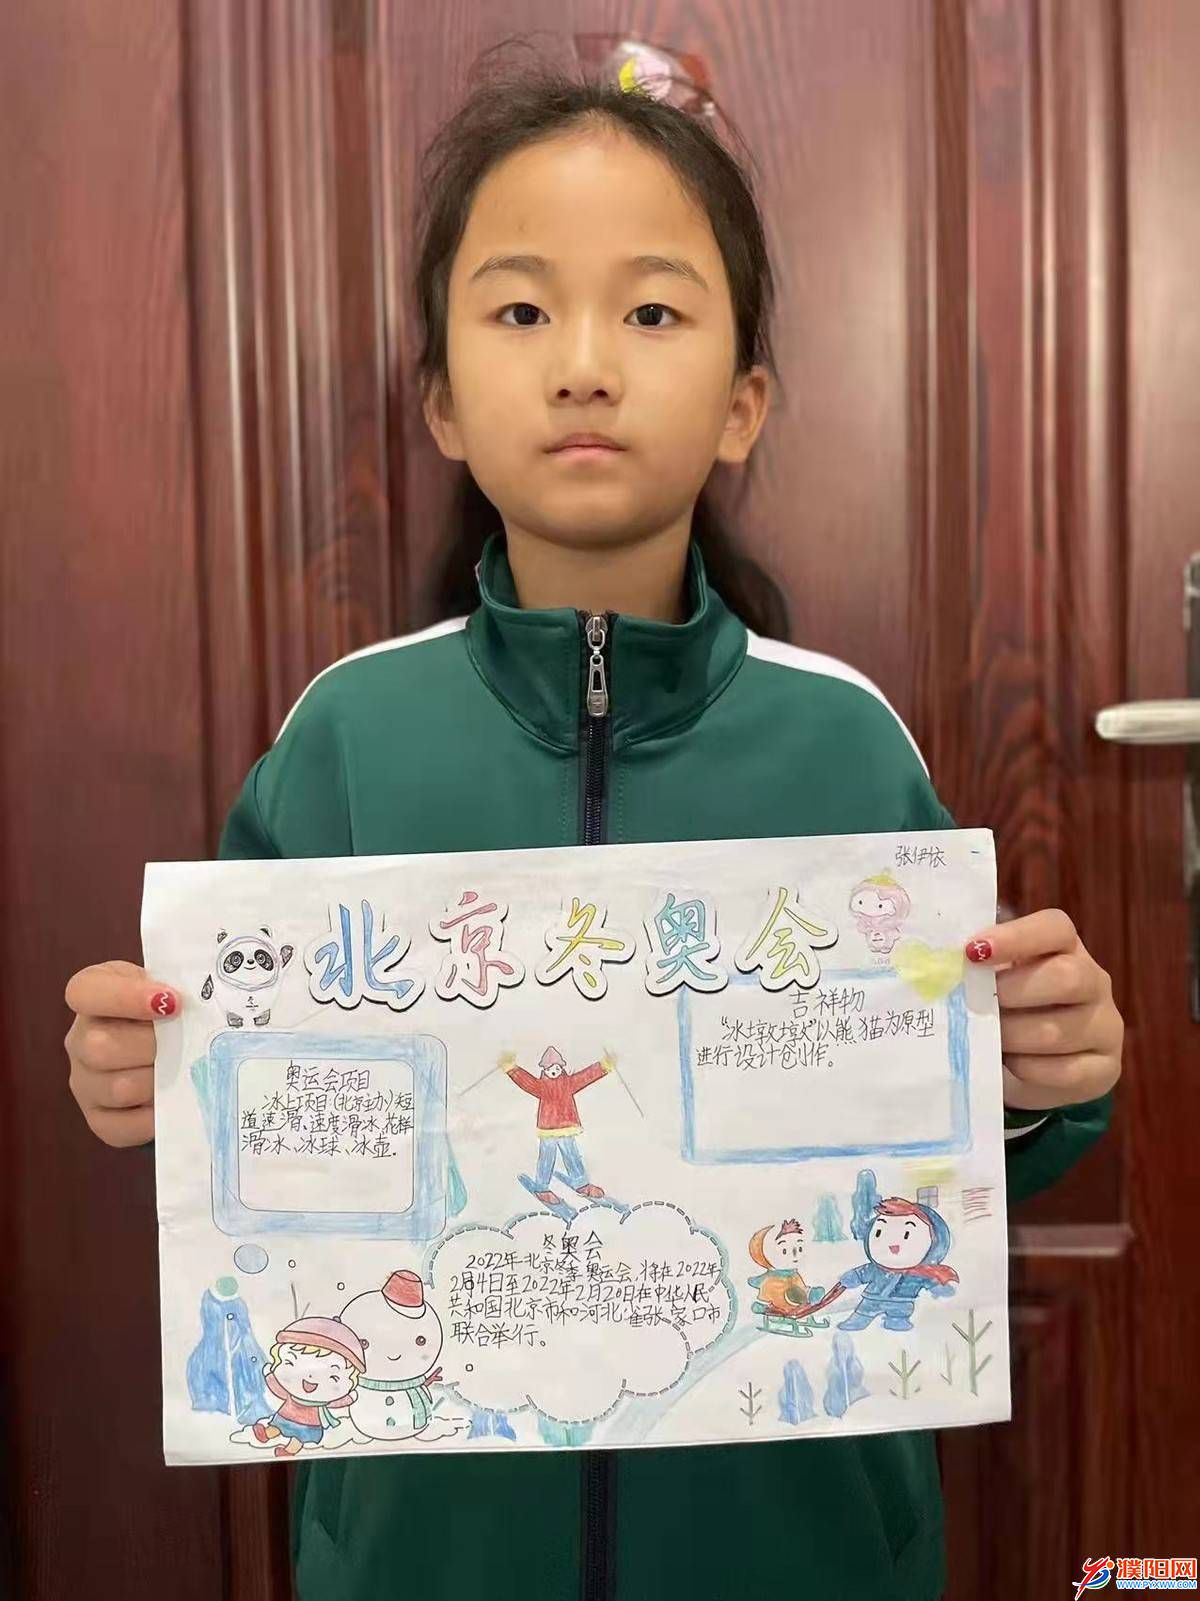 张伊依
北京冬奥会
吉祥物
“冰墩墩”以熊猫为原型
进行设计创作。
奥运会项目
冰上项目(北京主办)短
道速滑、速度滑冰、花样
滑冰、冰球、冰壶.
冬奥会
2022年北京冬季奥运会,将在2022年
2月4日至2022年2月20日在中华人民
共和国北京市和河北省张家口市
联合举行。
濮阳网
WWW.PYXWW.COM